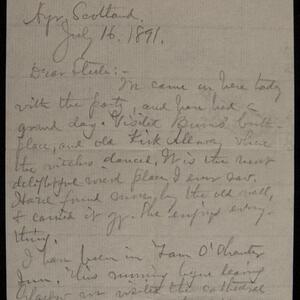 Ayr, Scotland.
July 16. 1891.
Dear
We came in here today
with the party, and have had a
grand day. Visited Burns' birth-
place, and old Kirk Alloway where
the witches danced. It is the most
delightful place I ever saw.
found money by the old well,
& The enjoys every-
thing.
I have been in "Tam O'Shanter
Inn." This morning before leaving
Glasgow we visited the cathedral